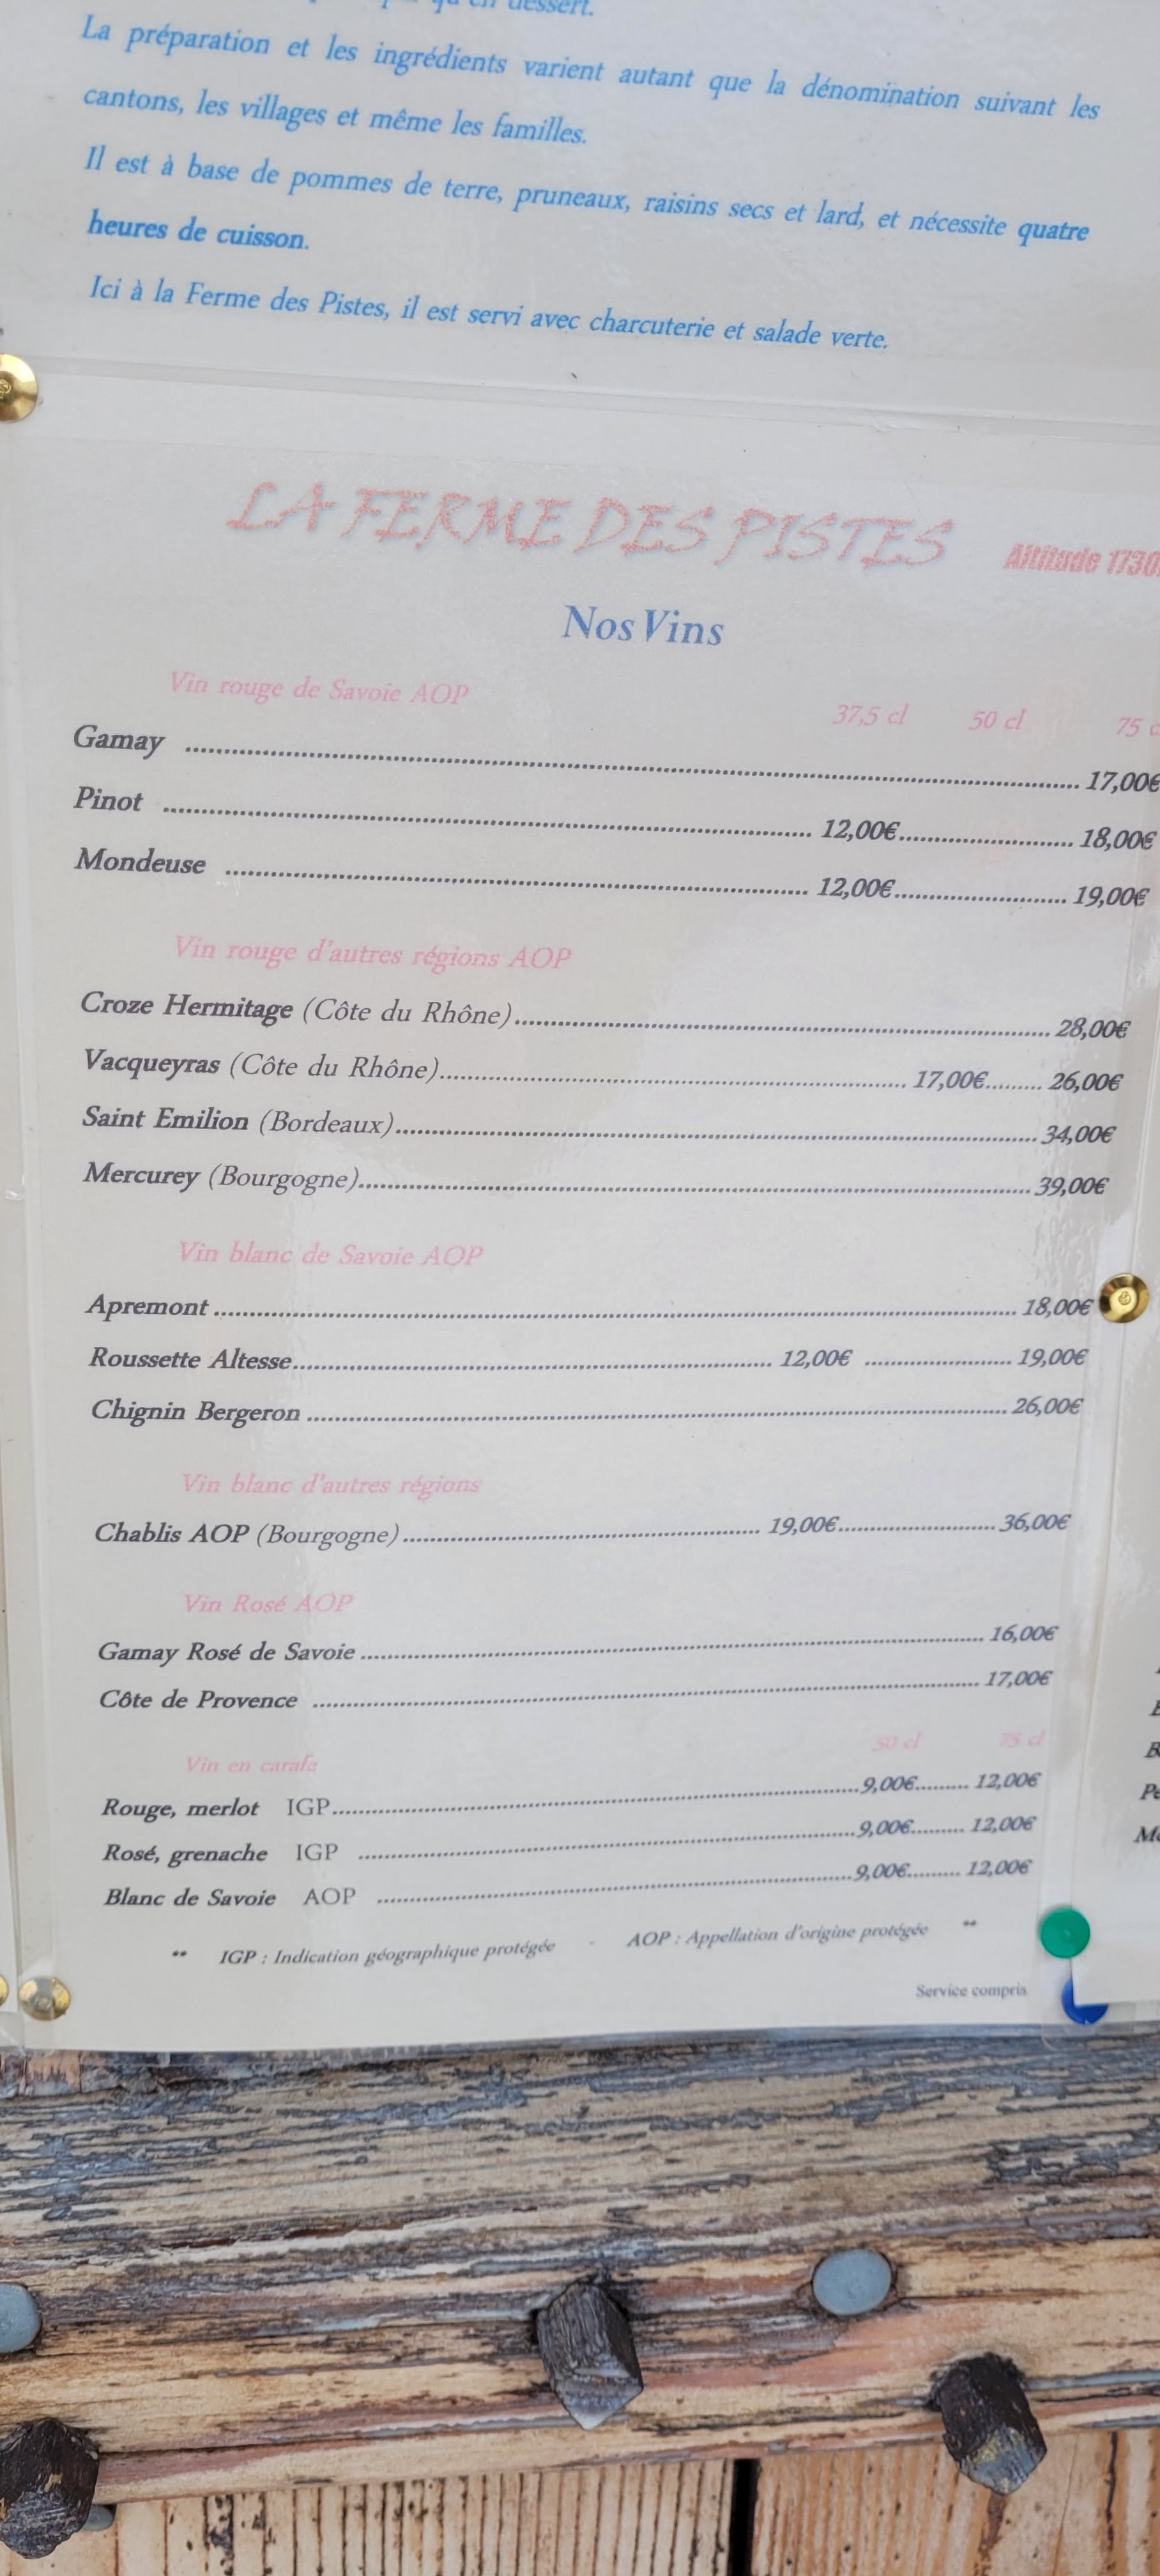 dessert.
La préparation et les ingrédients varient autant que la dénomination suivant les
cantons, les villages et même les familles.
Il est à base de pommes de terre, pruneaux, raisins secs et lard, et nécessite quatre
heures de cuisson.
Ici à la Ferme des Pistes, il est servi avec charcuterie et salade verte.
LA FERME DES PISTES Altitude 1730
Nos Vins
Vin rouge de Savoie AOP 37,5 cl 50 cl 75 c
Gamay ........ 17,00€
Pinot ........ 12,00€........ 18,00€
Mondeuse ........ 12,00€........ 19,00€
Vin rouge d'autres régions AOP
Croze Hermitage (Côte du Rhône)........ 28,00€
Vacqueyras (Côte du Rhône)........ 17,00€........ 26,00€
Saint Emilion (Bordeaux)........ 34,00€
Mercurey (Bourgogne)........ 39,00€
Vin blanc de Savoie AOP
Apremont ........ 18,00€
Roussette Altesse........ 12,00€ ........ 19,00€
Chignin Bergeron ........ 26,00€
Vin blanc d'autres régions
Chablis AOP (Bourgogne) ........ 19,00€........ 36,00€
Vin Rosé AOP
Gamay Rosé de Savoie ........ 16,00€
Côte de Provence ........ 17,00€
Vin en carafe 50 cl 75 cl
Rouge, merlot IGP........ 9,00€........ 12,00€
Rosé, grenache IGP ........ 9,00€........ 12,00€
Blanc de Savoie AOP ........ 9,00€........ 12,00€
** IGP : Indication géographique protégée - AOP : Appellation d'origine protégée **
Service compris